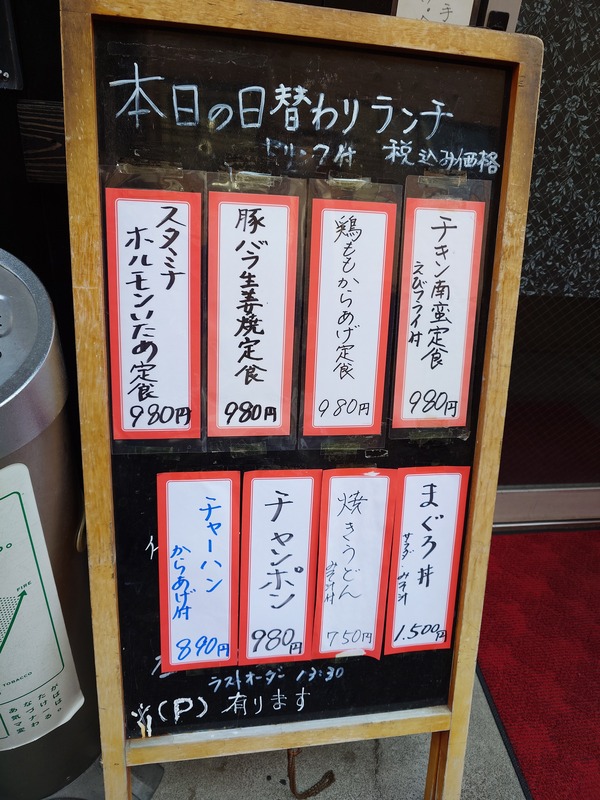 本日の日替わりランチ
ドリンク付 税込み価格
チキン南蛮定食
えびフライ付
980円
鶏ももからあげ定食
980円
豚バラ生姜焼定食
980円
スタミナ
ホルモンいため定食
980円
まぐろ丼
サラダ・みそ汁
1.500円
焼きうどん
みそ汁付
750円
チャンポン
980円
チャーハン
からあげ付
890円
ラストオーダー 13:30
(P)有ります
FIRE
TOBACCO
あなたが
気づけば
マナーは
変わる。